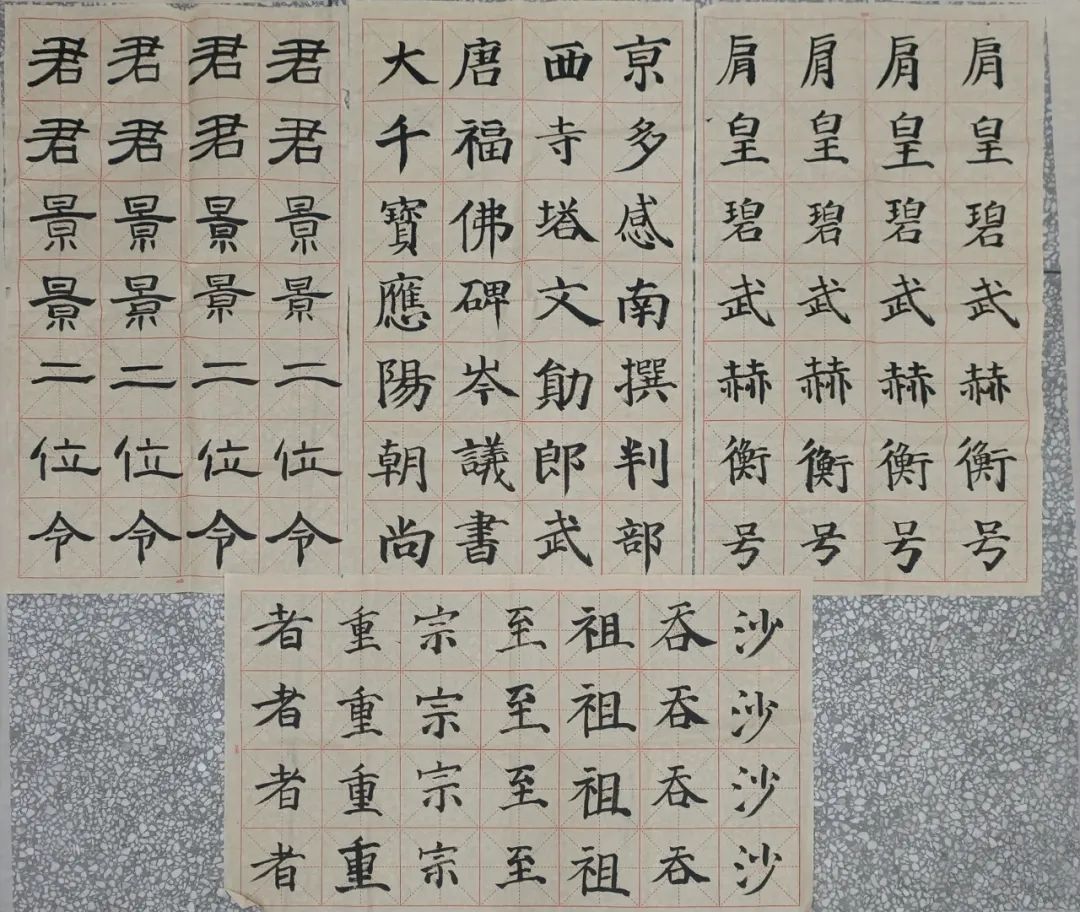 君君君君
君君君君
景景景景
景景景景
二二二二
位位位位
令令令令
大唐西亰
千福寺多
寶佛塔感
應碑文南
陽岑勛撰
朝議郎判
尚書武部
肩肩肩肩
皇皇皇皇
碧碧碧碧
武武武武
赫赫赫赫
衡衡衡衡
号号号号
者重宗至祖吞沙
者重宗至祖吞沙
者重宗至祖吞沙
者重宗至祖吞沙